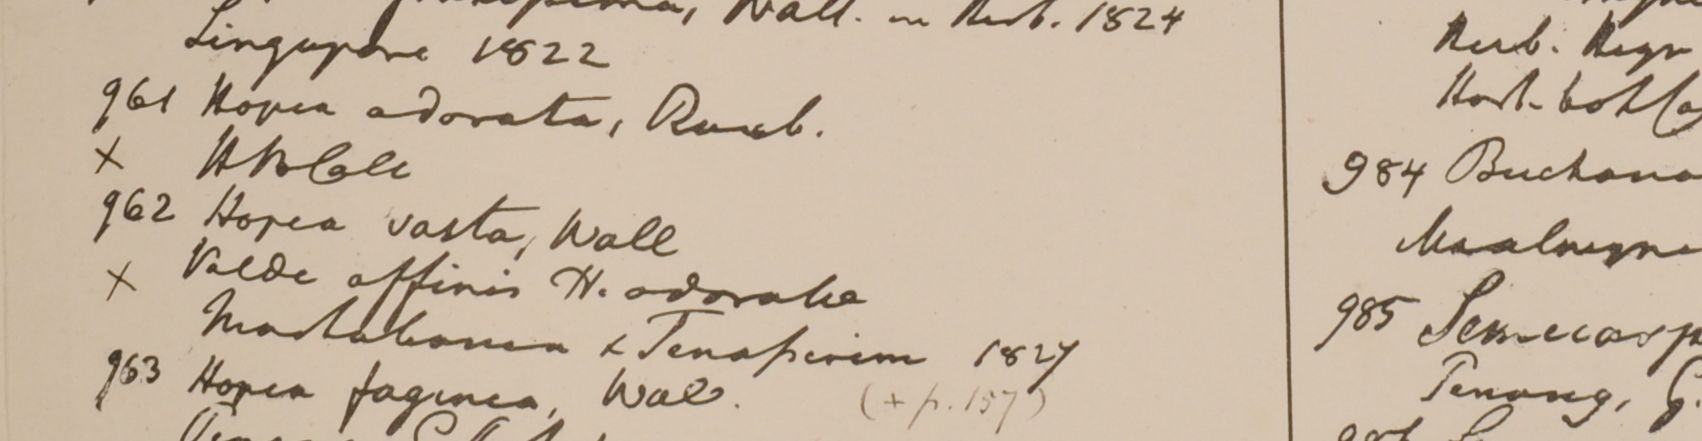 Wall. in Herb. 1824
Singapore 1822
961 Hopea odorata, Roxb.
x HBCalc
962 Hopea vasta, Wall
x Valde affinis H. odoratae
Martabania & Tenasserim 1827
963 Hopea faginea, Wall. (+ p. 157)
Herb.
Hort. bot Ca
984 Buchana
985 Semecarp
Penang, G.